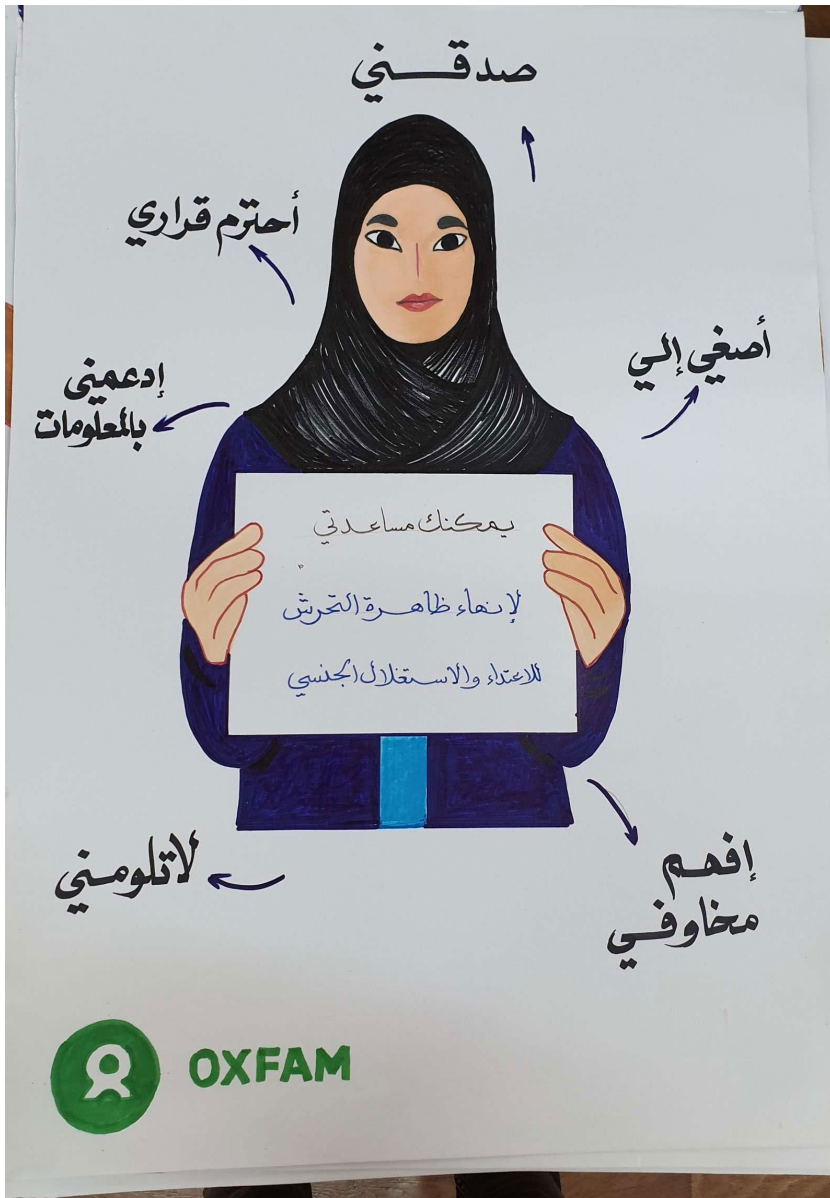 صدقني
أحترم قراري
أصغي إلي
إدعميني
بالمعلومات
يمكنك مساعدتي
لإنهاء ظاهرة التحرش
للاعتداء والاستغلال الجنسي
لاتلومني
إفهم
مخاوفي
OXFAM